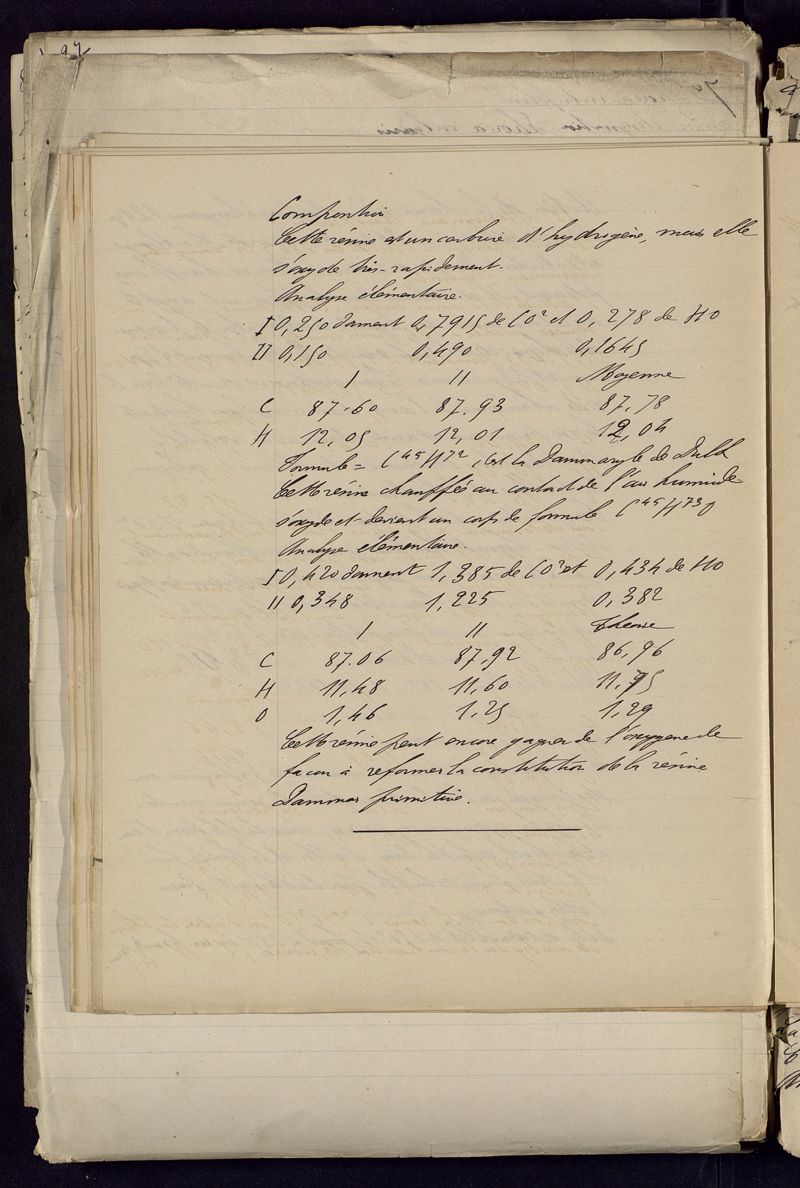 97
Composition
Cette résine est un carbure d'hydrogène, mais elle
s'oxyde très-rapidement.
Analyse élémentaire.
I 0,250 donnent 0,7915 de CO² et 0,278 de HO
II 0,150 0,490 0,1645
I II Moyenne
C 87.60 87.93 87.78
H 12,05 12,01 12,04
Formule = C⁴⁵H⁷², c'est la Dammaryle de Dulk
Cette résine chauffée au contact de l'air humide
s'oxyde et devient un corps de formule C⁴⁵H⁷³O
Analyse élémentaire.
I 0,420 donnent 1,385 de CO² et 0,434 de HO
II 0,348 1,225 0,382
I II Théorie
C 87.06 87,92 86,96
H 11,48 11,60 11,75
O 1,46 1,25 1,29
Cette résine peut encore gagner de l'oxygène de
façon à reformer la constitution de la résine
Dammar primitive.